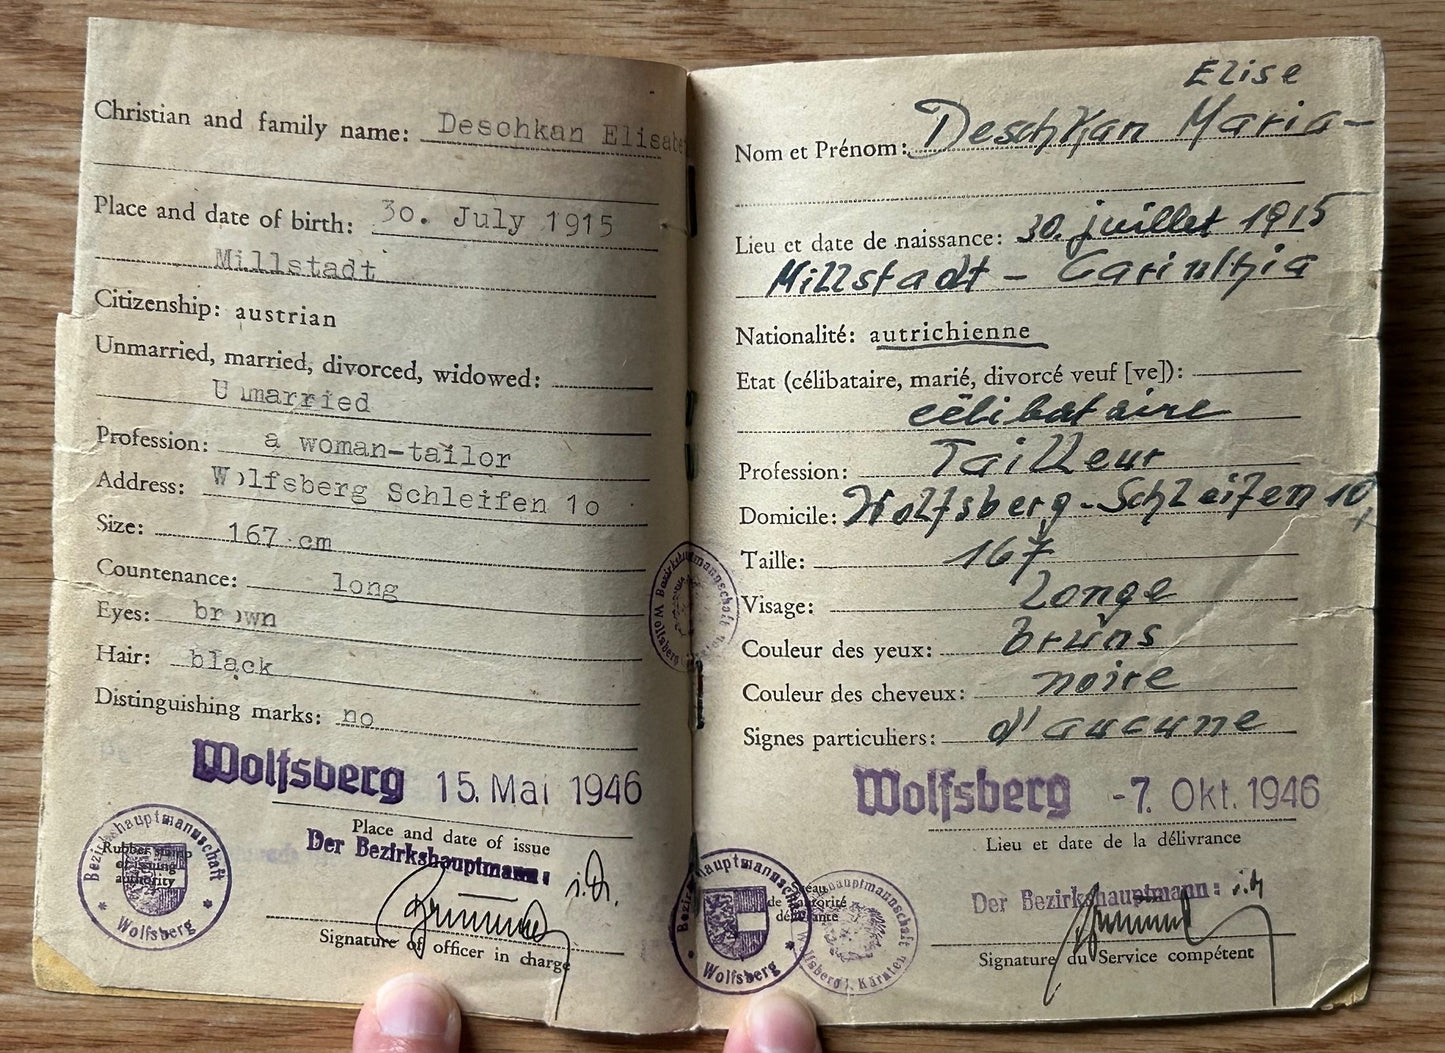 Christian and family name: Deschkan Elisabe
Place and date of birth: 30. July 1915
Millstadt
Citizenship: austrian
Unmarried, married, divorced, widowed:
Unmarried
Profession: a woman-tailor
Address: Wolfsberg Schleifen 10
Size: 167 cm
Countenance: long
Eyes: brown
Hair: black
Distinguishing marks: no
Wolfsberg 15. Mai 1946
Place and date of issue
Der Bezirkshauptmann:
Rubber stamp
of issuing
authority
Bezirkshauptmannschaft
* Wolfsberg *
Signature of officer in charge
Bezirkshauptmannschaft
Wolfsberg
Elise
Nom et Prénom: Deschkan Maria-
Lieu et date de naissance: 30. juillet 1915
Millstadt - Carinthia
Nationalité: autrichienne
Etat (célibataire, marié, divorcé veuf [ve]):
célibataire
Profession: Tailleur
Domicile: Wolfsberg-Schleifen 10
Taille: 167
Visage: longe
Couleur des yeux: bruns
Couleur des cheveux: noire
Signes particuliers: d'aucune
Wolfsberg -7. Okt. 1946
Lieu et date de la délivrance
Der Bezirkshauptmann:
Bezirkshauptmannschaft
* Wolfsberg *
Wolfsberg i. Kärnten
Signature du Service compétent